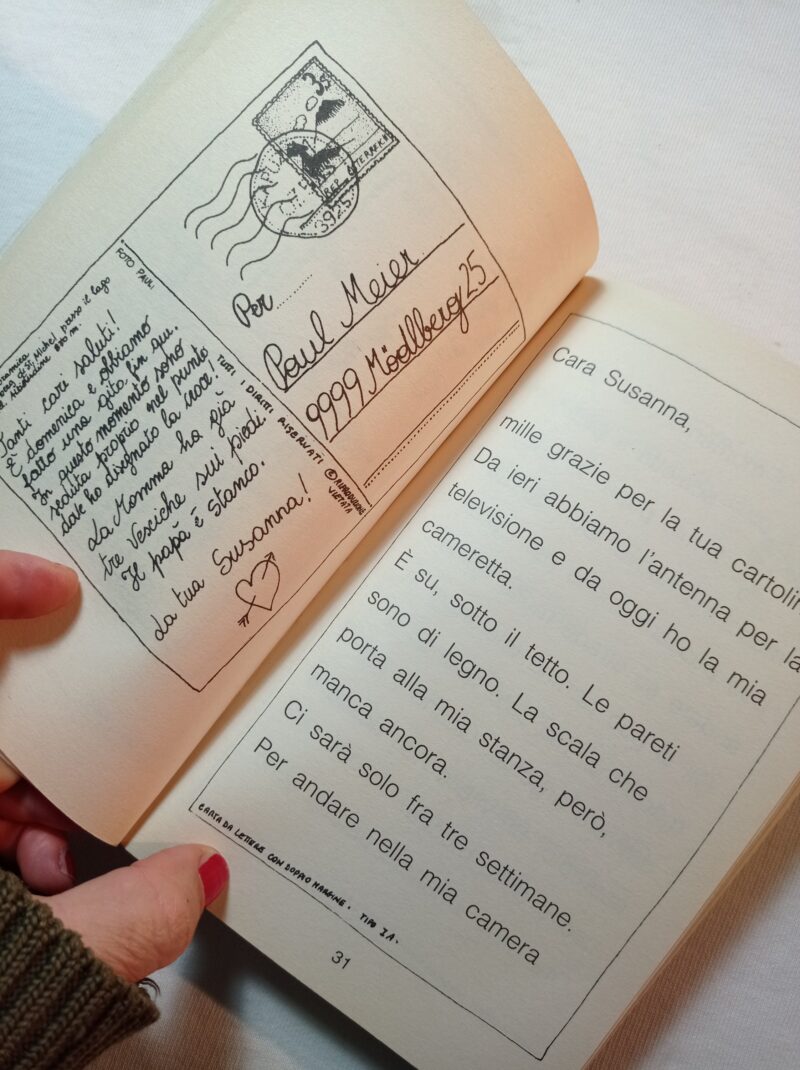 3s
REP. ÖSTERREICH
3925
Per........
Paul Meier
9999 Mödlberg 25
FOTO PAULI
TUTTI I DIRITTI RISERVATI © RIPRODUZIONE
VIETATA
presso il lago
Tanti cari saluti!
È domenica e abbiamo
fatto una gita fin qui.
In questo momento sono
seduta proprio nel punto
dove ho disegnato la croce!
La Mamma ha già
tre vesciche sui piedi.
Il papà è stanco.
La tua Susanna!
Cara Susanna,
mille grazie per la tua cartolin
Da ieri abbiamo l'antenna per la
televisione e da oggi ho la mia
cameretta.
È su, sotto il tetto. Le pareti
sono di legno. La scala che
porta alla mia stanza, però,
manca ancora.
Ci sarà solo fra tre settimane.
Per andare nella mia camera
CARTA DA LETTERE CON DOPPIO MARGINE. TIPO IA.
31